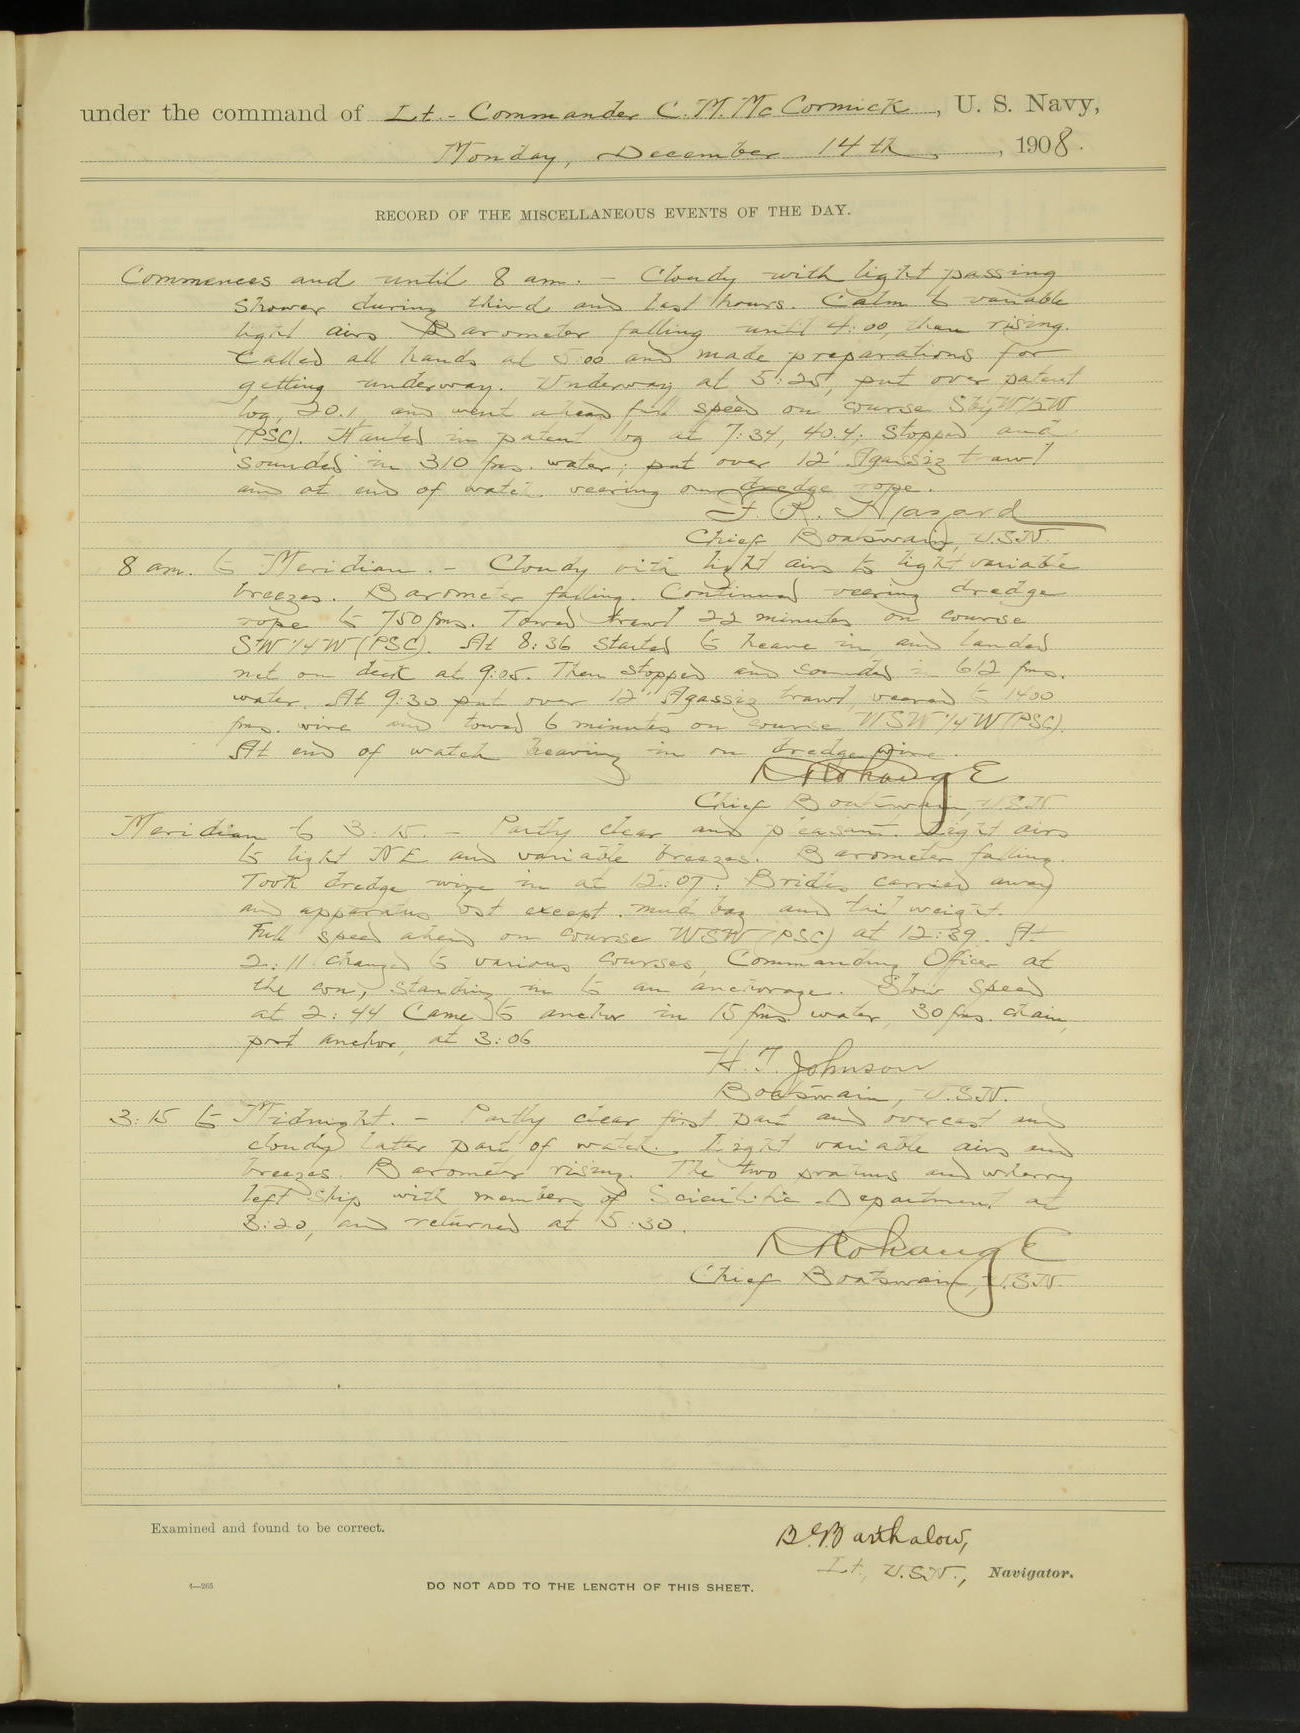 under the command of Lt.- Commander C. M. McCormick, U. S. Navy,
Monday, December 14th, 1908.
RECORD OF THE MISCELLANEOUS EVENTS OF THE DAY.
Commences and until 8 am. - Cloudy with light passing
shower during third and last hours. Calm to variable
light airs Barometer falling until 4:00, then rising.
Called all hands at :00 and made preparations for
getting underway. Underway at 5:25, put over patent
log, 20.1, and went ahead full speed on course SbyW1/2W
(PSC). Hauled in patent log at 7:34, 40.4; stopped and
sounded in 310 fms. water; put over 12' Agassiz trawl
and at end of watch veering on dredge rope.
F. R. Hazard
Chief Boatswain, U.S.N.
8 am. to Meridian. - Cloudy with light airs to light variable
breezes. Barometer falling. Continued veering dredge
rope to 750 fms. Towed trawl 22 minutes on course
SW 1/4 W (PSC). At 8:36 started to heave in and landed
net on deck at 9:05. Then stopped and sounded in 612 fms.
water. At 9:30 put over 12' Agassiz trawl, veered to 1400
fms. wire and towed 6 minutes on course WSW 1/4 W (PSC).
At end of watch heaving in on dredge wire.
Chief Boatswain, U.S.N.
Meridian to 3:15. - Partly clear and pleasant. Light airs
to light NE and variable breezes. Barometer falling.
Took dredge wire in at 12:07: Bridle carried away
and apparatus lost except mud bag and tail weight.
Full speed ahead on course WSW (PSC) at 12:39. At
2:11 changed to various courses, Commanding Officer at
the con, standing in to an anchorage. Slow speed
at 2:44 Came to anchor in 15 fms. water, 30 fms. chain,
port anchor, at 3:06
H. T. Johnson
Boatswain, U.S.N.
3:15 to Midnight. - Partly clear first part and overcast and
cloudy latter part of watch. Light variable airs and
breezes. Barometer rising. The two prahms and wherry
left ship with members of Scientific Department at
3:20, and returned at 5:30.
Chief Boatswain, U.S.N.
Examined and found to be correct.
B. G. Barthalow,
Lt., U.S.N., Navigator.
4-265
DO NOT ADD TO THE LENGTH OF THIS SHEET.